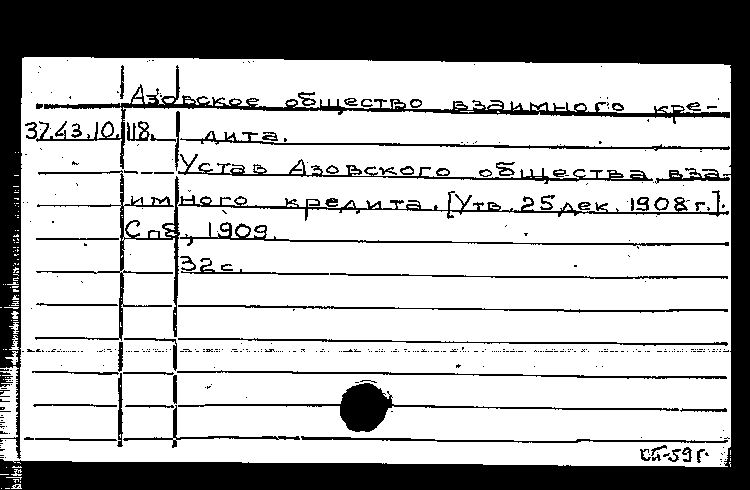 Азовское общество взаимного кре-
37.43.10.118. дита.
Устав Азовского общества вза-
имного кредита. [Утв. 25 дек. 1908 г.].
Спб., 1909.
32 с.